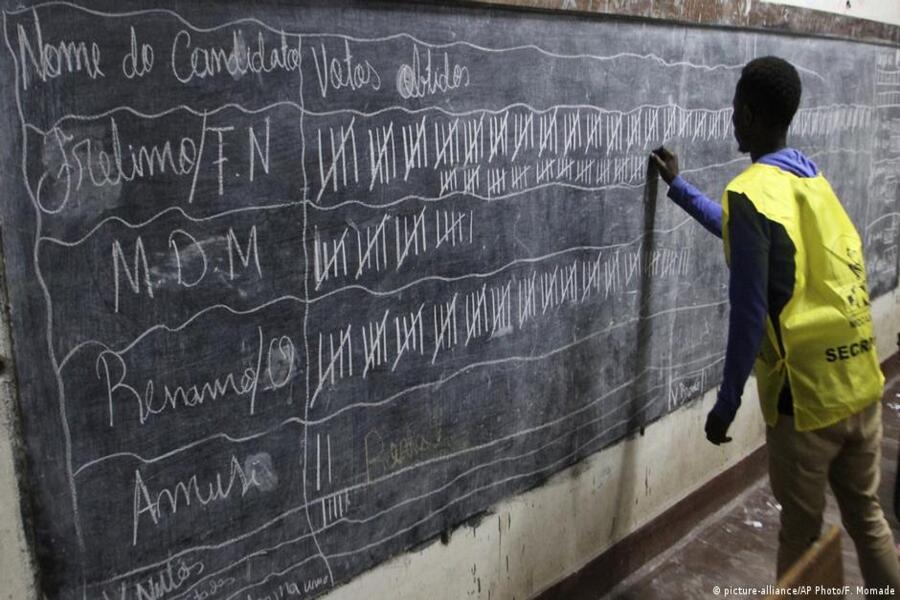 Nome do Candidato
Votos obtidos
Frelimo/F.N
M.D.M
Renamo/O
Amusi
V. Nulos
SECR
© picture-alliance/AP Photo/F. Momade